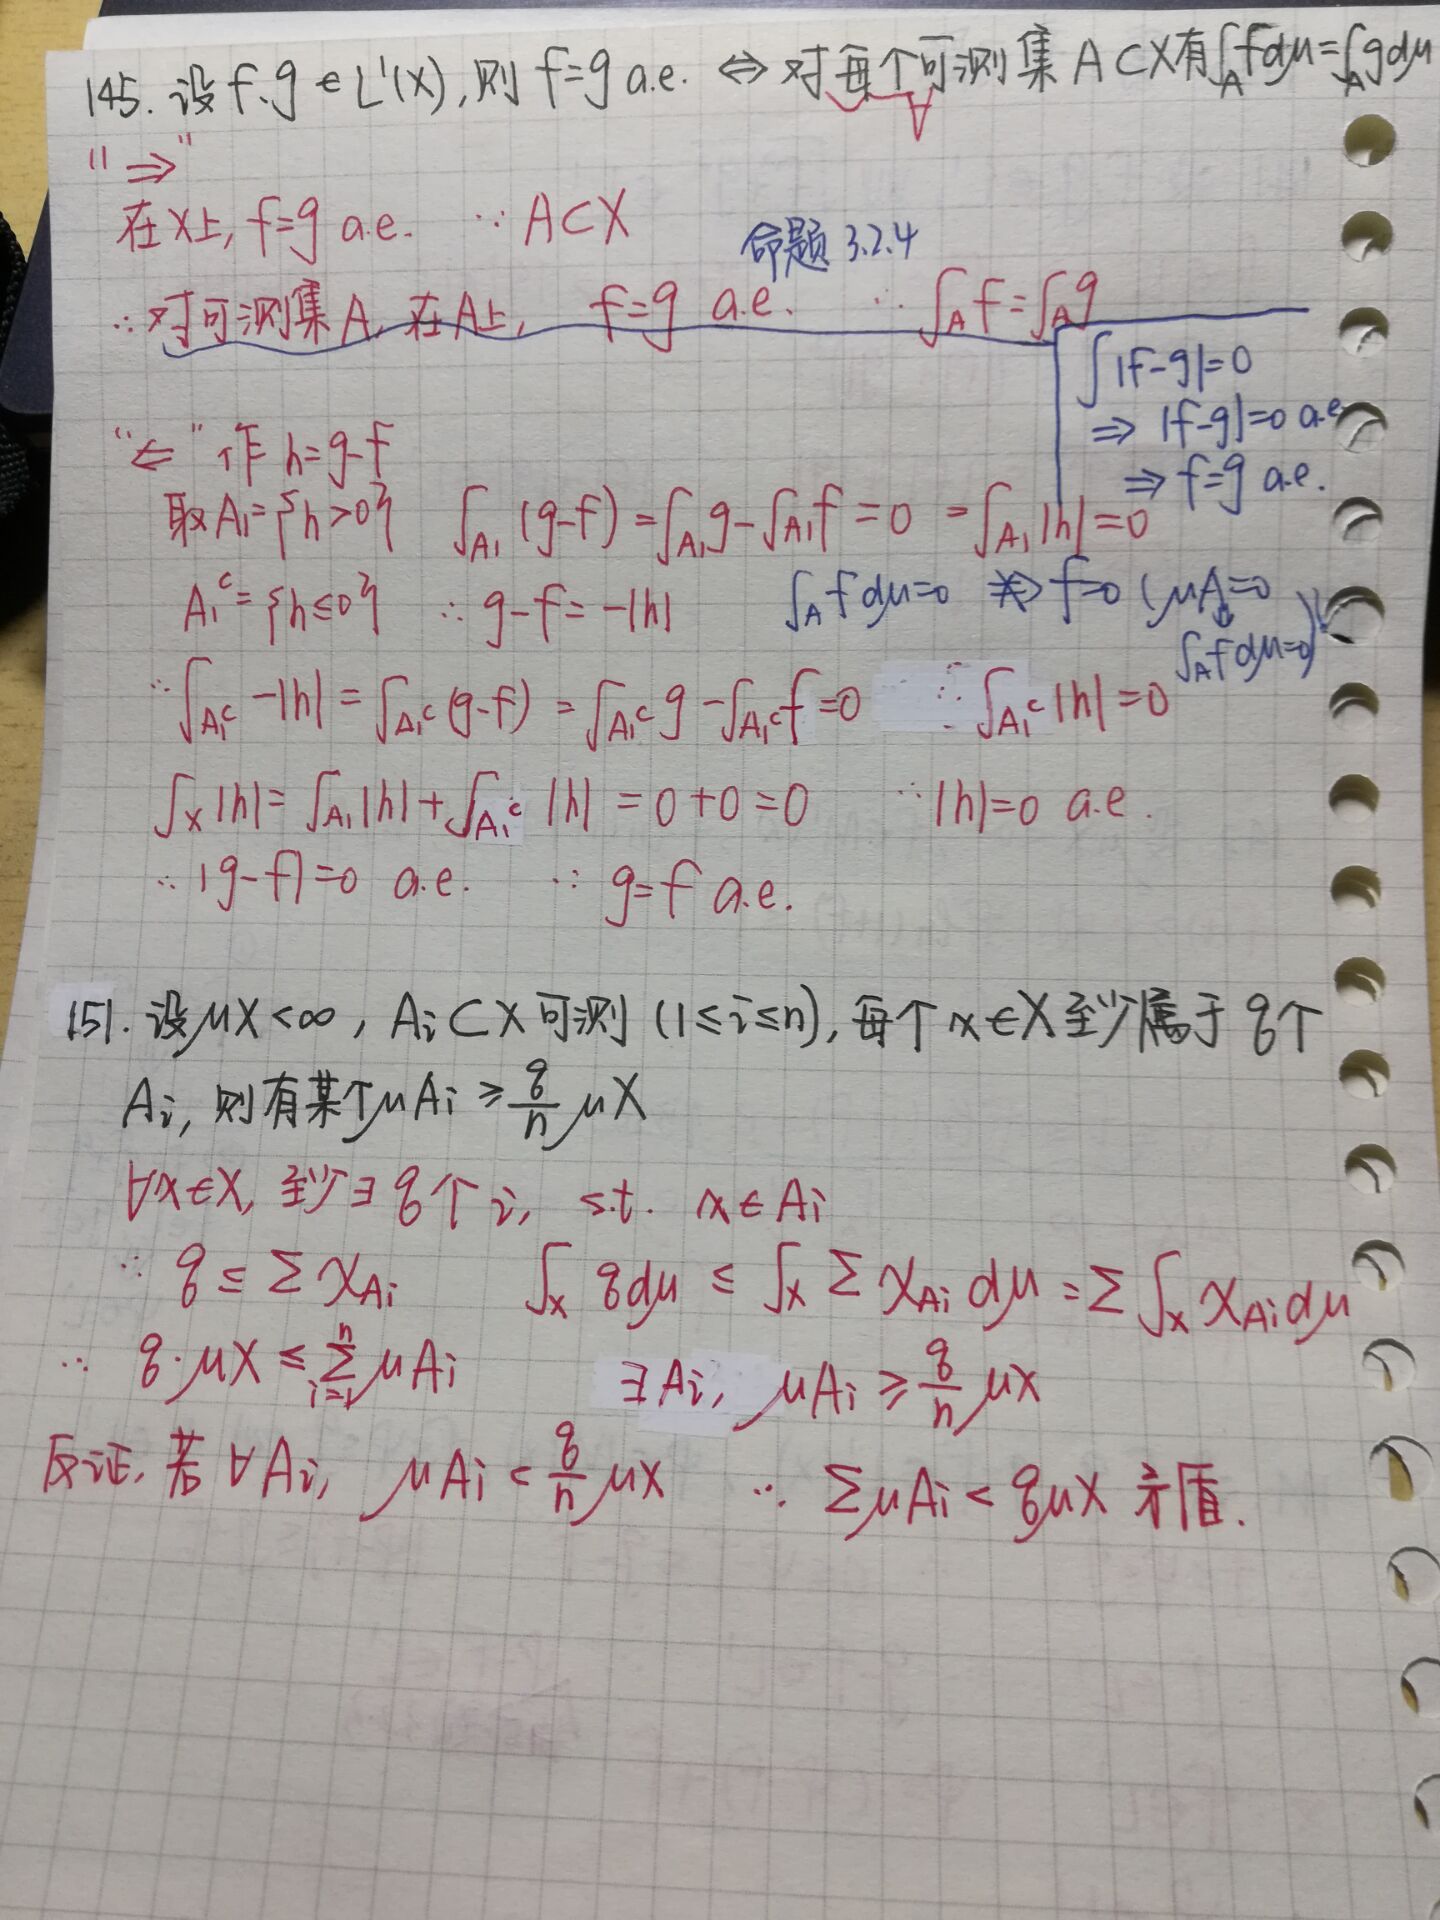 145. 设 f、g ∈ L¹(X), 则 f=g a.e. ⇔ 对每个可测集 A⊂X有∫_A fdμ=∫_A gdμ
∀
"⇒"
在X上, f=g a.e. ∵ A⊂X
命题 3.2.4
∴ 对可测集A, 在A上, f=g a.e. ∴ ∫_A f=∫_A g
∫|f-g|=0
⇒ |f-g|=0 a.e.
⇒ f=g a.e.
"⇐" 作 h=g-f
取A₁={h>0} ∫_{A₁} (g-f) = ∫_{A₁} g - ∫_{A₁} f = 0 = ∫_{A₁} |h| = 0
A₁ᶜ={h≤0} ∴ g-f=-|h|
∫_A fdμ=0 ⇏ f=0 (μA=0
⇓
∫_A fdμ=0)
∴ ∫_{A₁ᶜ} -|h| = ∫_{A₁ᶜ} (g-f) = ∫_{A₁ᶜ} g - ∫_{A₁ᶜ} f = 0 ∴ ∫_{A₁ᶜ} |h| = 0
∫_X |h| = ∫_{A₁} |h| + ∫_{A₁ᶜ} |h| = 0+0=0 ∴ |h|=0 a.e.
∴ |g-f|=0 a.e. ∴ g=f a.e.
151. 设μX<∞, Aᵢ⊂X可测 (1≤i≤n), 每个 x∈X至少属于 q个
Aᵢ, 则有某个μAᵢ ≥ q/n μX
∀x∈X, 至少∃ q个 i, s.t. x∈Aᵢ
∴ q ≤ Σ χ_{Aᵢ} ∫_X qdμ ≤ ∫_X Σ χ_{Aᵢ} dμ = Σ ∫_X χ_{Aᵢ} dμ
∴ q·μX ≤ Σ_{i=1}^{n} μAᵢ ∃Aᵢ, μAᵢ ≥ q/n μX
反证, 若 ∀Aᵢ, μAᵢ < q/n μX ∴ ΣμAᵢ < qμX 矛盾.